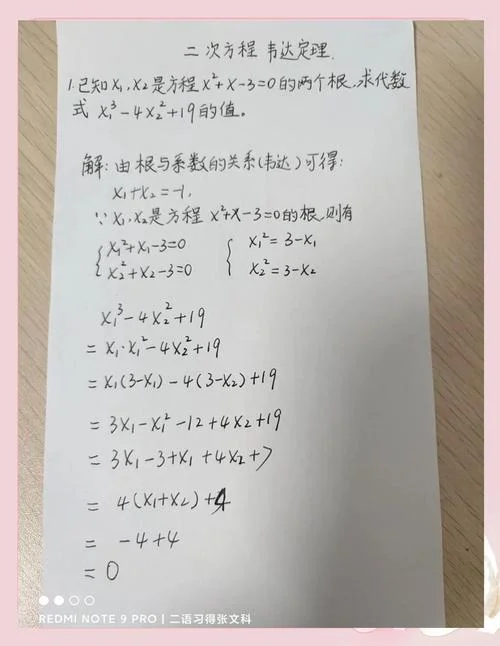 二次方程 韦达定理.
1.已知x₁,x₂是方程x²+x-3=0的两个根,求代数
式 x₁³-4x₂²+19的值。
解:由根与系数的关系(韦达)可得:
x₁+x₂=-1,
∵x₁,x₂是方程 x²+x-3=0的根,则有
{x₁²+x₁-3=0 {x₁²=3-x₁
{x₂²+x₂-3=0 {x₂²=3-x₂
x₁³-4x₂²+19
=x₁·x₁²-4x₂²+19
=x₁(3-x₁)-4(3-x₂)+19
=3x₁-x₁²-12+4x₂+19
=3x₁-3+x₁+4x₂+7
=4(x₁+x₂)+4
=-4+4
=0
REDMI NOTE 9 PRO | 二语习得张文科